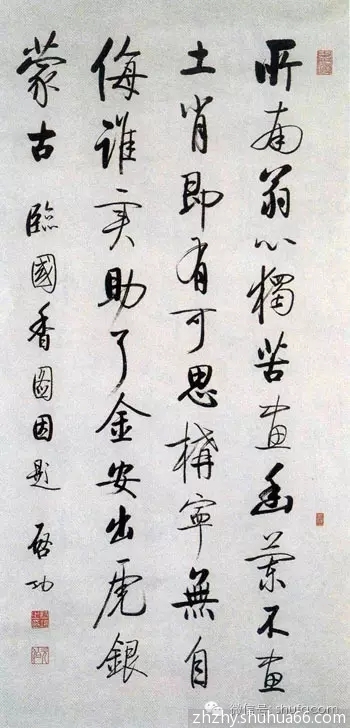 所南翁心獨苦畫幽蘭不畫
土肖即有可思構寧無自
侮誰实助了金安出虎銀
蒙古 臨國香圖因題 启功
微信号:
zhzhy.shuhua66.com